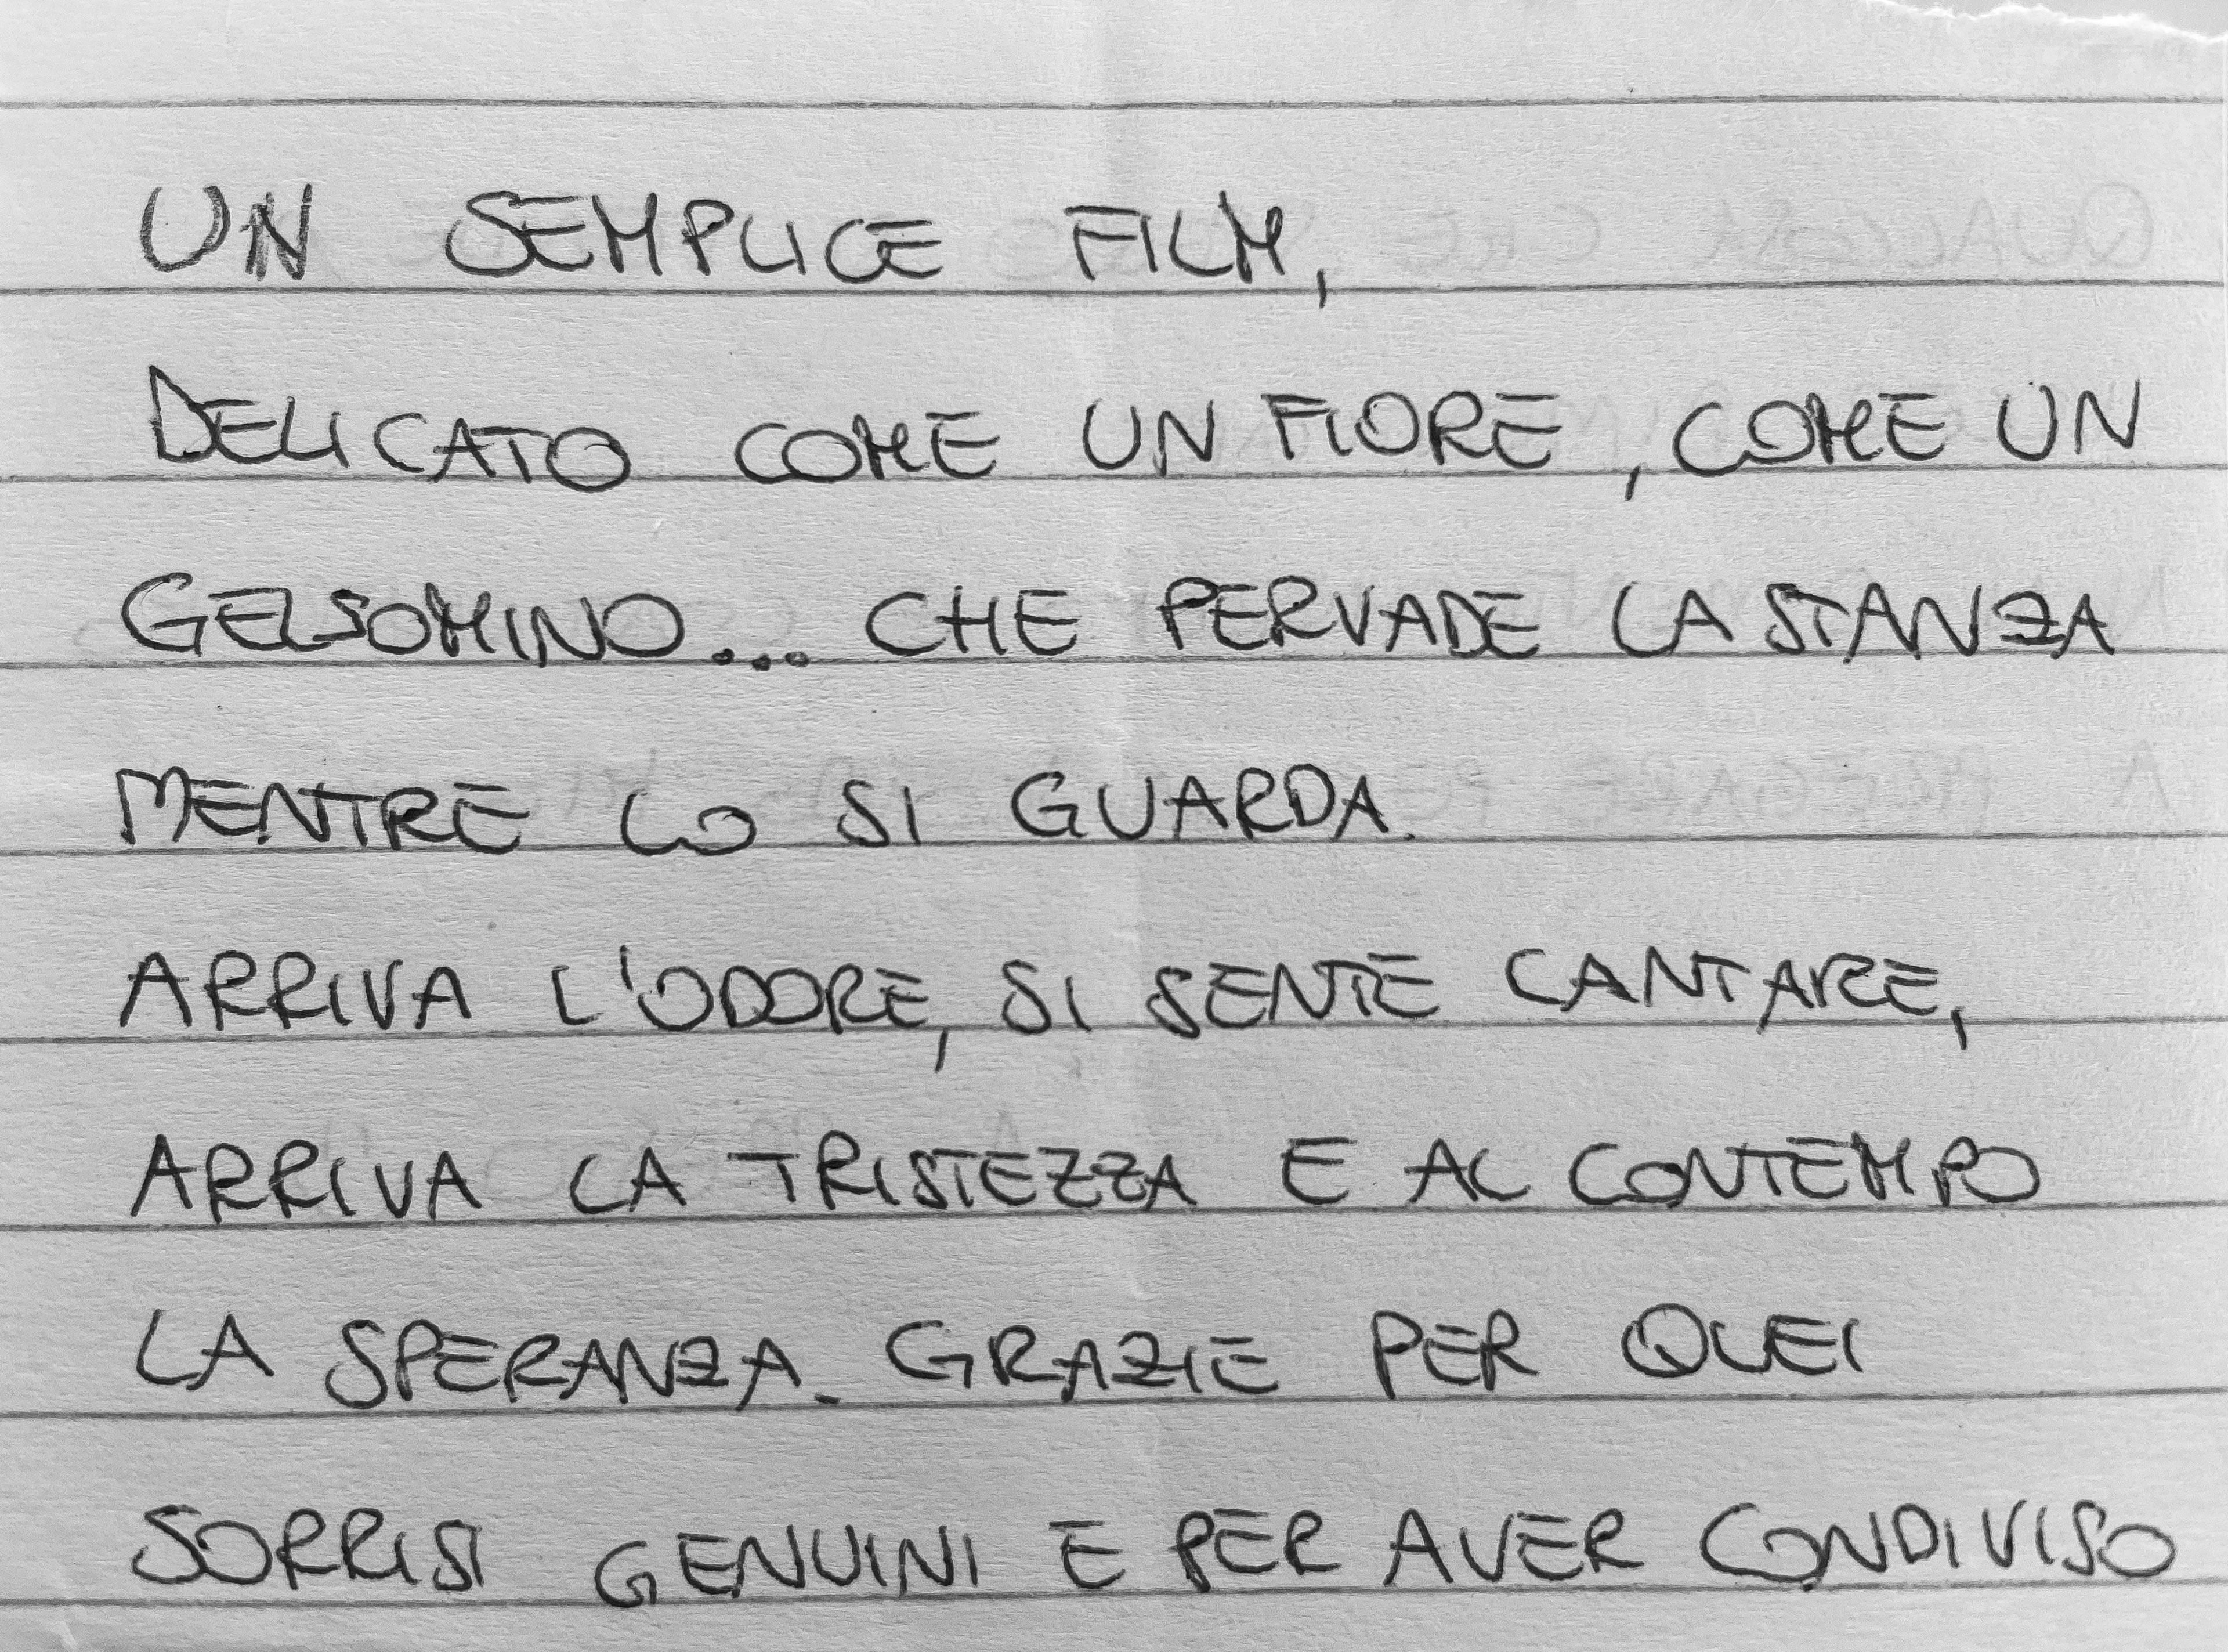 UN SEMPLICE FILM,
DELICATO COME UN FIORE, COME UN
GELSOMINO... CHE PERVADE LA STANZA
MENTRE LO SI GUARDA.
ARRIVA L'ODORE, SI SENTE CANTARE,
ARRIVA LA TRISTEZZA E AL CONTEMPO
LA SPERANZA. GRAZIE PER QUEI
SORRISI GENUINI E PER AVER CONDIVISO